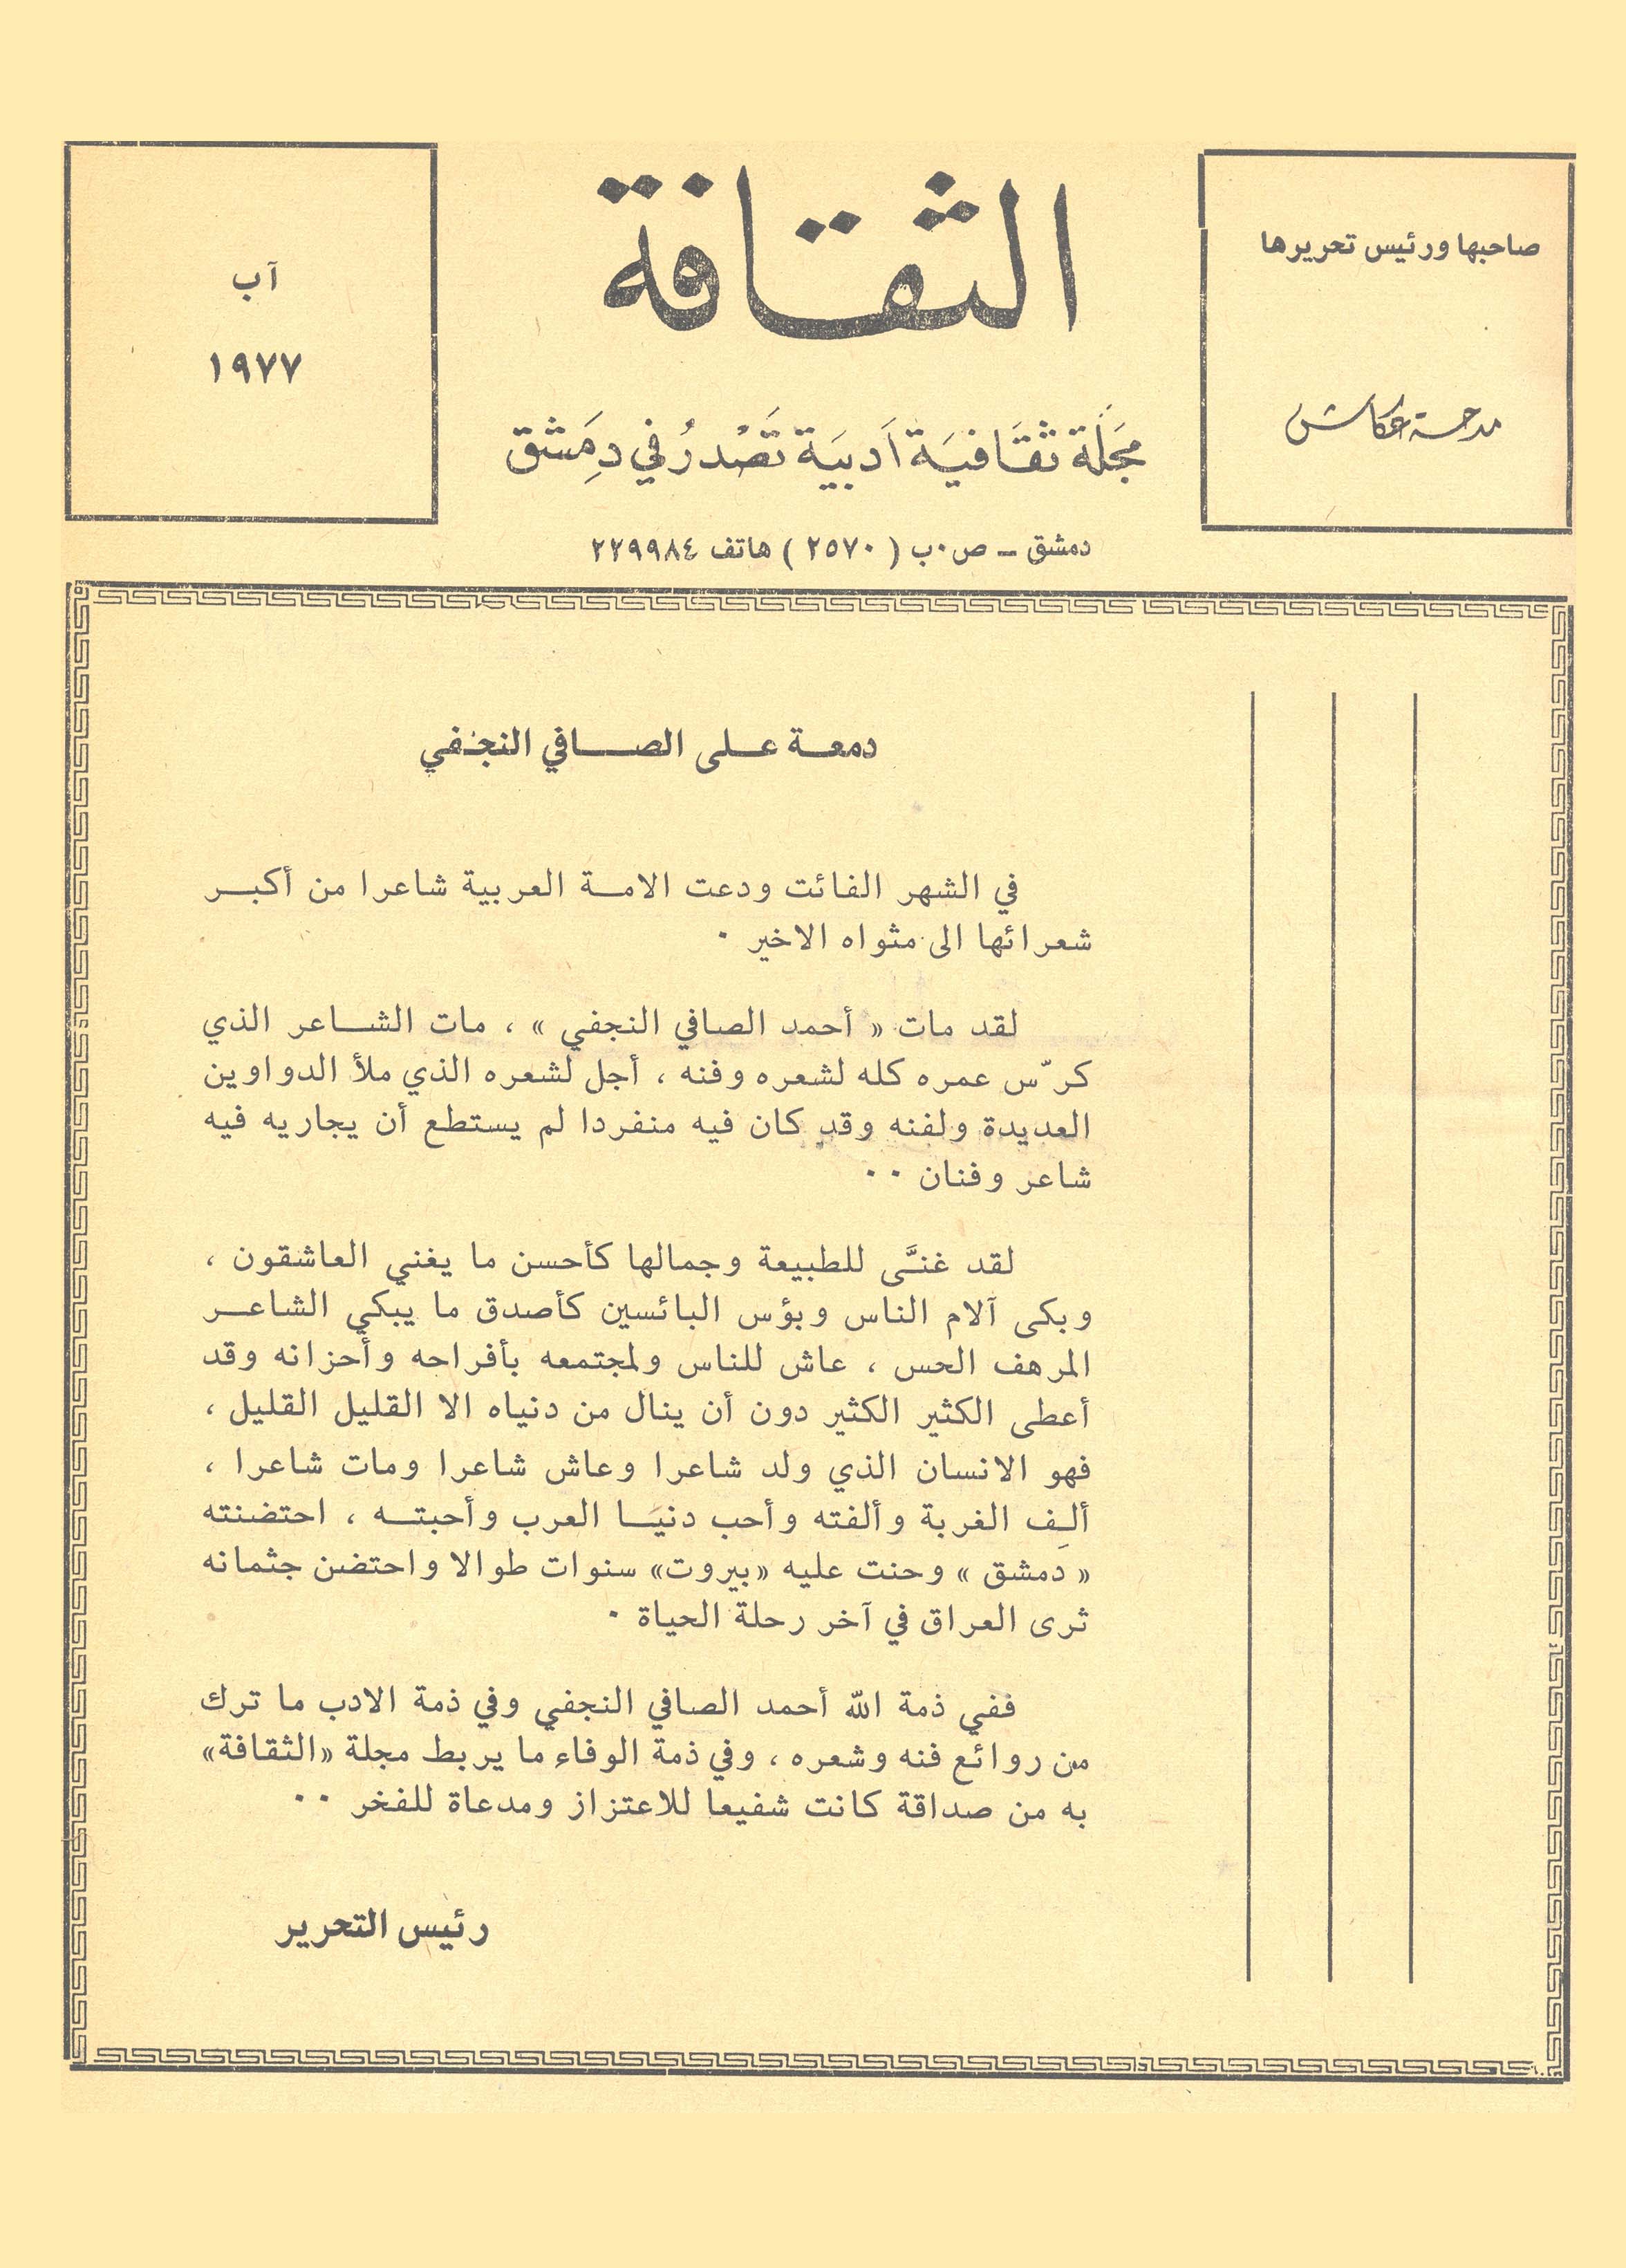 صاحبها ورئيس تحريرها
مدحة عكاش
الثقافة
مَجَلّة ثقَافيَة أَدبيَة تَصْدرُ في دِمَشق
دمشق ـ ص٠ب ( ٢٥٧٠ ) هاتف ٢٢٩٩٨٤
آب
١٩٧٧
دمعـة علـى الصـــافي النجفي
في الشهر الفائت ودعت الامـة العربية شاعرا من أكبـر
شعرائها الى مثواه الاخير ٠
لقد مات « أحمد الصافي النجفي » ، مات الشـاعر الذي
كرّس عمره كله لشعره وفنه ، أجل لشعره الذي ملأ الدواوين
العديدة ولفنه وقد كان فيه منفردا لم يستطع أن يجاريه فيه
شاعر وفنان ٠٠
لقد غنَّى للطبيعة وجمالها كأحسن ما يغني العاشقون ،
وبكى آلام الناس وبؤس البائسين كأصدق ما يبكي الشاعـر
المرهف الحس ، عاش للناس ولمجتمعه بأفراحه وأحزانه وقد
أعطى الكثير الكثير دون أن ينال من دنياه الا القليل القليل ،
فهو الانسان الذي ولد شاعرا وعاش شاعرا ومات شاعرا ،
ألِف الغربة وألفته وأحب دنيَـا العرب وأحبتـه ، احتضنته
« دمشق » وحنت عليه «بيروت» سنوات طوالا واحتضن جثمانه
ثرى العراق في آخر رحلة الحياة ٠
ففي ذمة الله أحمد الصافي النجفي وفي ذمة الادب ما ترك
من روائع فنه وشعره ، وفي ذمة الوفاء ما يربط مجلة «الثقافة»
به من صداقة كانت شفيعا للاعتزاز ومدعاة للفخر ٠٠
رئيس التحرير